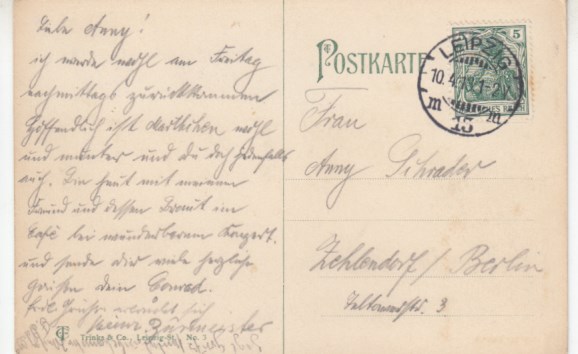 Liebe Anny!
ich werde wohl am Freitag
nachmittags zurückkommen
Hoffentlich ist wohl
und munter und du doch jedenfalls
auch. Bin heut mit meinem
Freund und dessen Braut im
Café bei wunderbarem Konzert.
und sende dir viele herzliche
Grüße dein Conrad.
POSTKARTE
5
LEIPZIG
10.4.
1-2N
13
Frau
Anny Schrader
Zehlendorf / Berlin
3
Trinks & Co., Leipzig